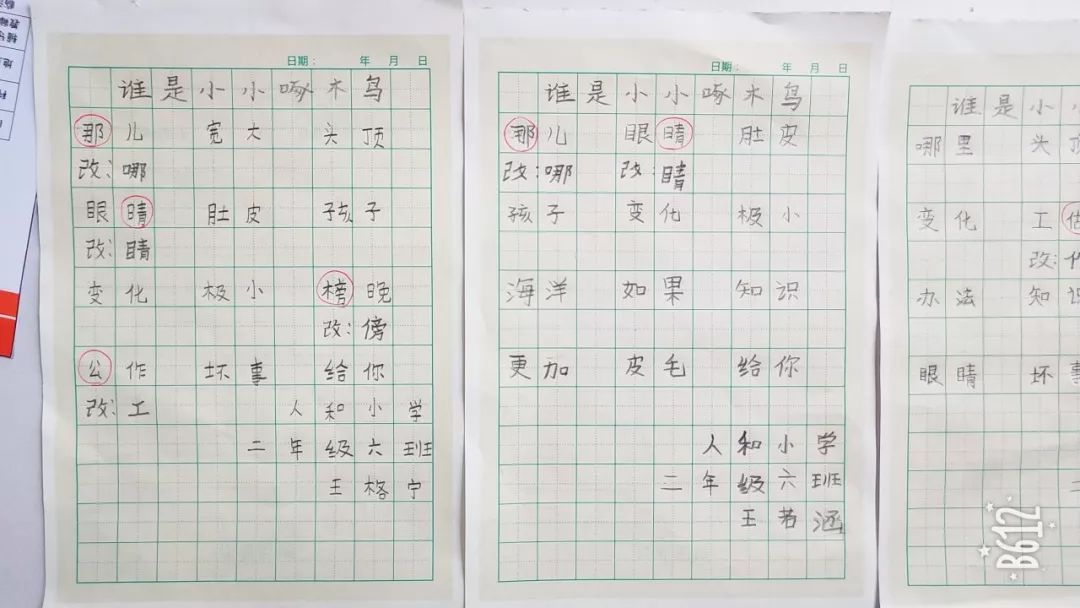 日期： 年 月 日
谁是小小啄木鸟
那儿 宽大 头顶
改：哪
眼晴 肚皮 孩子
改：睛
变化 极小 榜晚
改：傍
公作 坏事 给你
改：工 人和小学
二年级六班
王格宁
日期： 年 月 日
谁是小小啄木鸟
那儿 眼晴 肚皮
改：哪 改：睛
孩子 变化 极小
海洋 如果 知识
更加 皮毛 给你
人和小学
二年级六班
王若涵
谁是小
哪里 头
变化 工
改：作
办法 知识
眼睛 坏事
二
B612